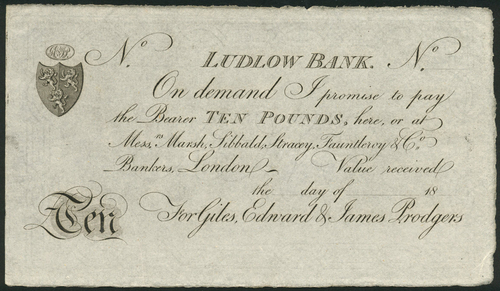 No. LUDLOW BANK. No.
On demand I promise to pay
the Bearer TEN POUNDS, here, or at
Messrs. Marsh, Sibbald, Stracey, Fauntleroy & Co.
Bankers, London Value received
the day of 18
Ten For Giles, Edward & James Prodgers